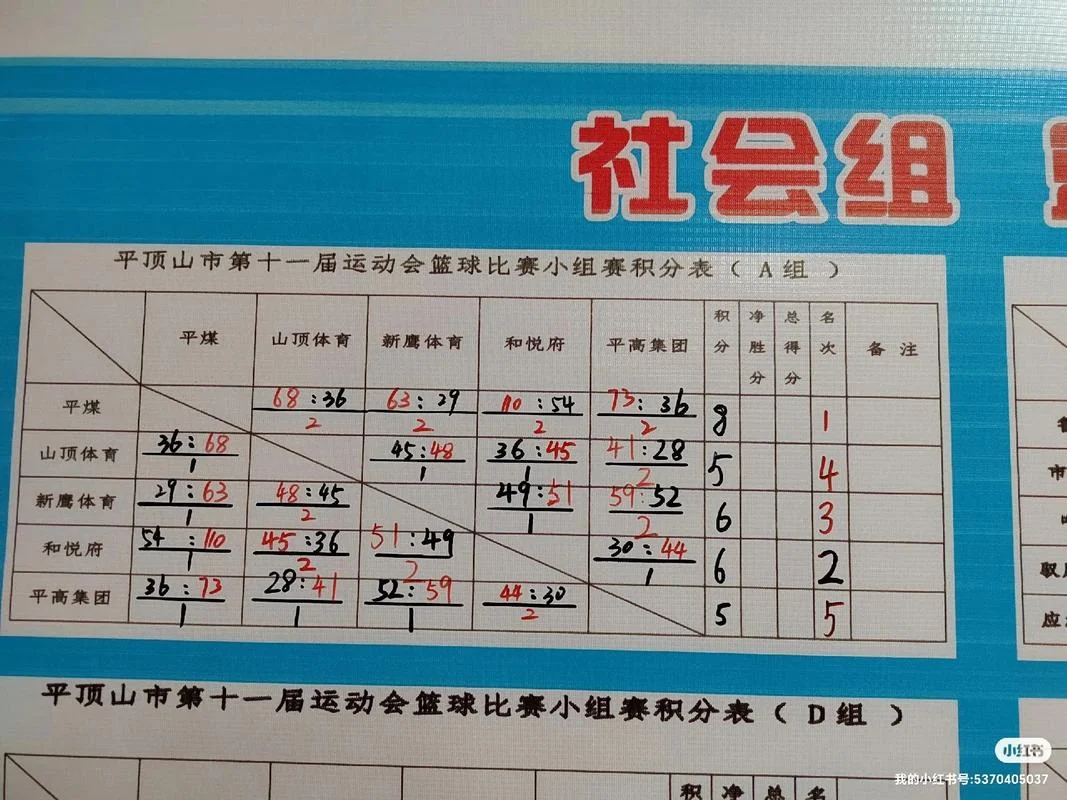 社会组
平顶山市第十一届运动会篮球比赛小组赛积分表（A组）
平煤 山顶体育 新鹰体育 和悦府 平高集团 积分 净胜分 总得分 名次 备注
平煤 68:36 2 63:29 2 110:54 2 73:36 2 8 1
山顶体育 36:68 1 45:48 1 36:45 1 41:28 2 5 4
新鹰体育 29:63 1 48:45 2 49:51 1 59:52 2 6 3
和悦府 54:110 1 45:36 2 51:49 2 30:44 1 6 2
平高集团 36:73 1 28:41 1 52:59 1 44:30 2 5 5
市
应
平顶山市第十一届运动会篮球比赛小组赛积分表（D组）
积 净 总 名
小红书
我的小红书号:5370405037